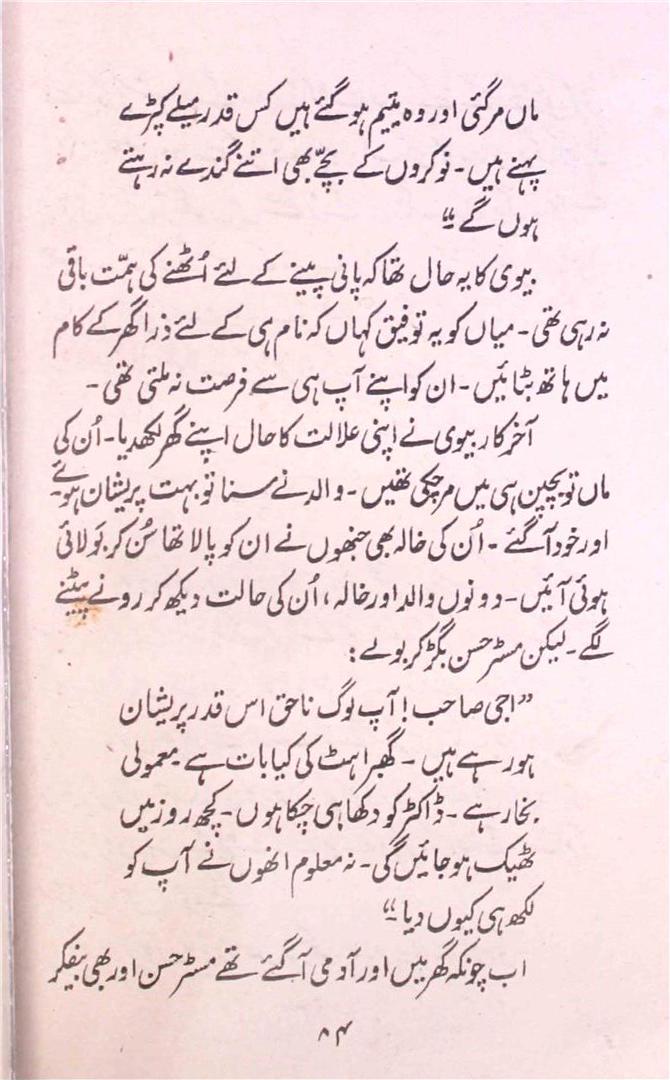 ماں مر گئی اور وہ یتیم ہو گئے ہیں کس قدر میلے کپڑے
پہنے ہیں۔ نوکروں کے بچّے بھی اتنے گندے نہ رہتے
ہوں گے۔“
بیوی کا یہ حال تھا کہ پانی پینے کے لئے اُٹھنے کی ہمّت باقی
نہ رہی تھی۔ میاں کو یہ توفیق کہاں کہ نام ہی کے لئے ذرا گھر کے کام
میں ہاتھ بٹائیں۔ ان کو اپنے آپ ہی سے فرصت نہ ملتی تھی۔
آخر کار بیوی نے اپنی علالت کا حال اپنے گھر لکھ دیا۔ اُن کی
ماں تو بچپن ہی میں مر چکی تھیں۔ والد نے سنا تو بہت پریشان ہوئے
اور خود آ گئے۔ اُن کی خالہ بھی جنھوں نے ان کو پالا تھا سُن کر بَولائی
ہوئی آئیں۔ دونوں والد اور خالہ، اُن کی حالت دیکھ کر رونے پیٹنے
لگے۔ لیکن مسٹر حسن بگڑ کر بولے:
”اجی صاحب! آپ لوگ ناحق اس قدر پریشان
ہو رہے ہیں۔ گھبراہٹ کی کیا بات ہے معمولی
بخار ہے۔ ڈاکٹر کو دکھا ہی چکا ہوں۔ کچھ روز میں
ٹھیک ہو جائیں گی۔ نہ معلوم انھوں نے آپ کو
لکھ ہی کیوں دیا۔“
اب چونکہ گھر میں اور آدمی آ گئے تھے مسٹر حسن اور بھی بیفکر
۸۴